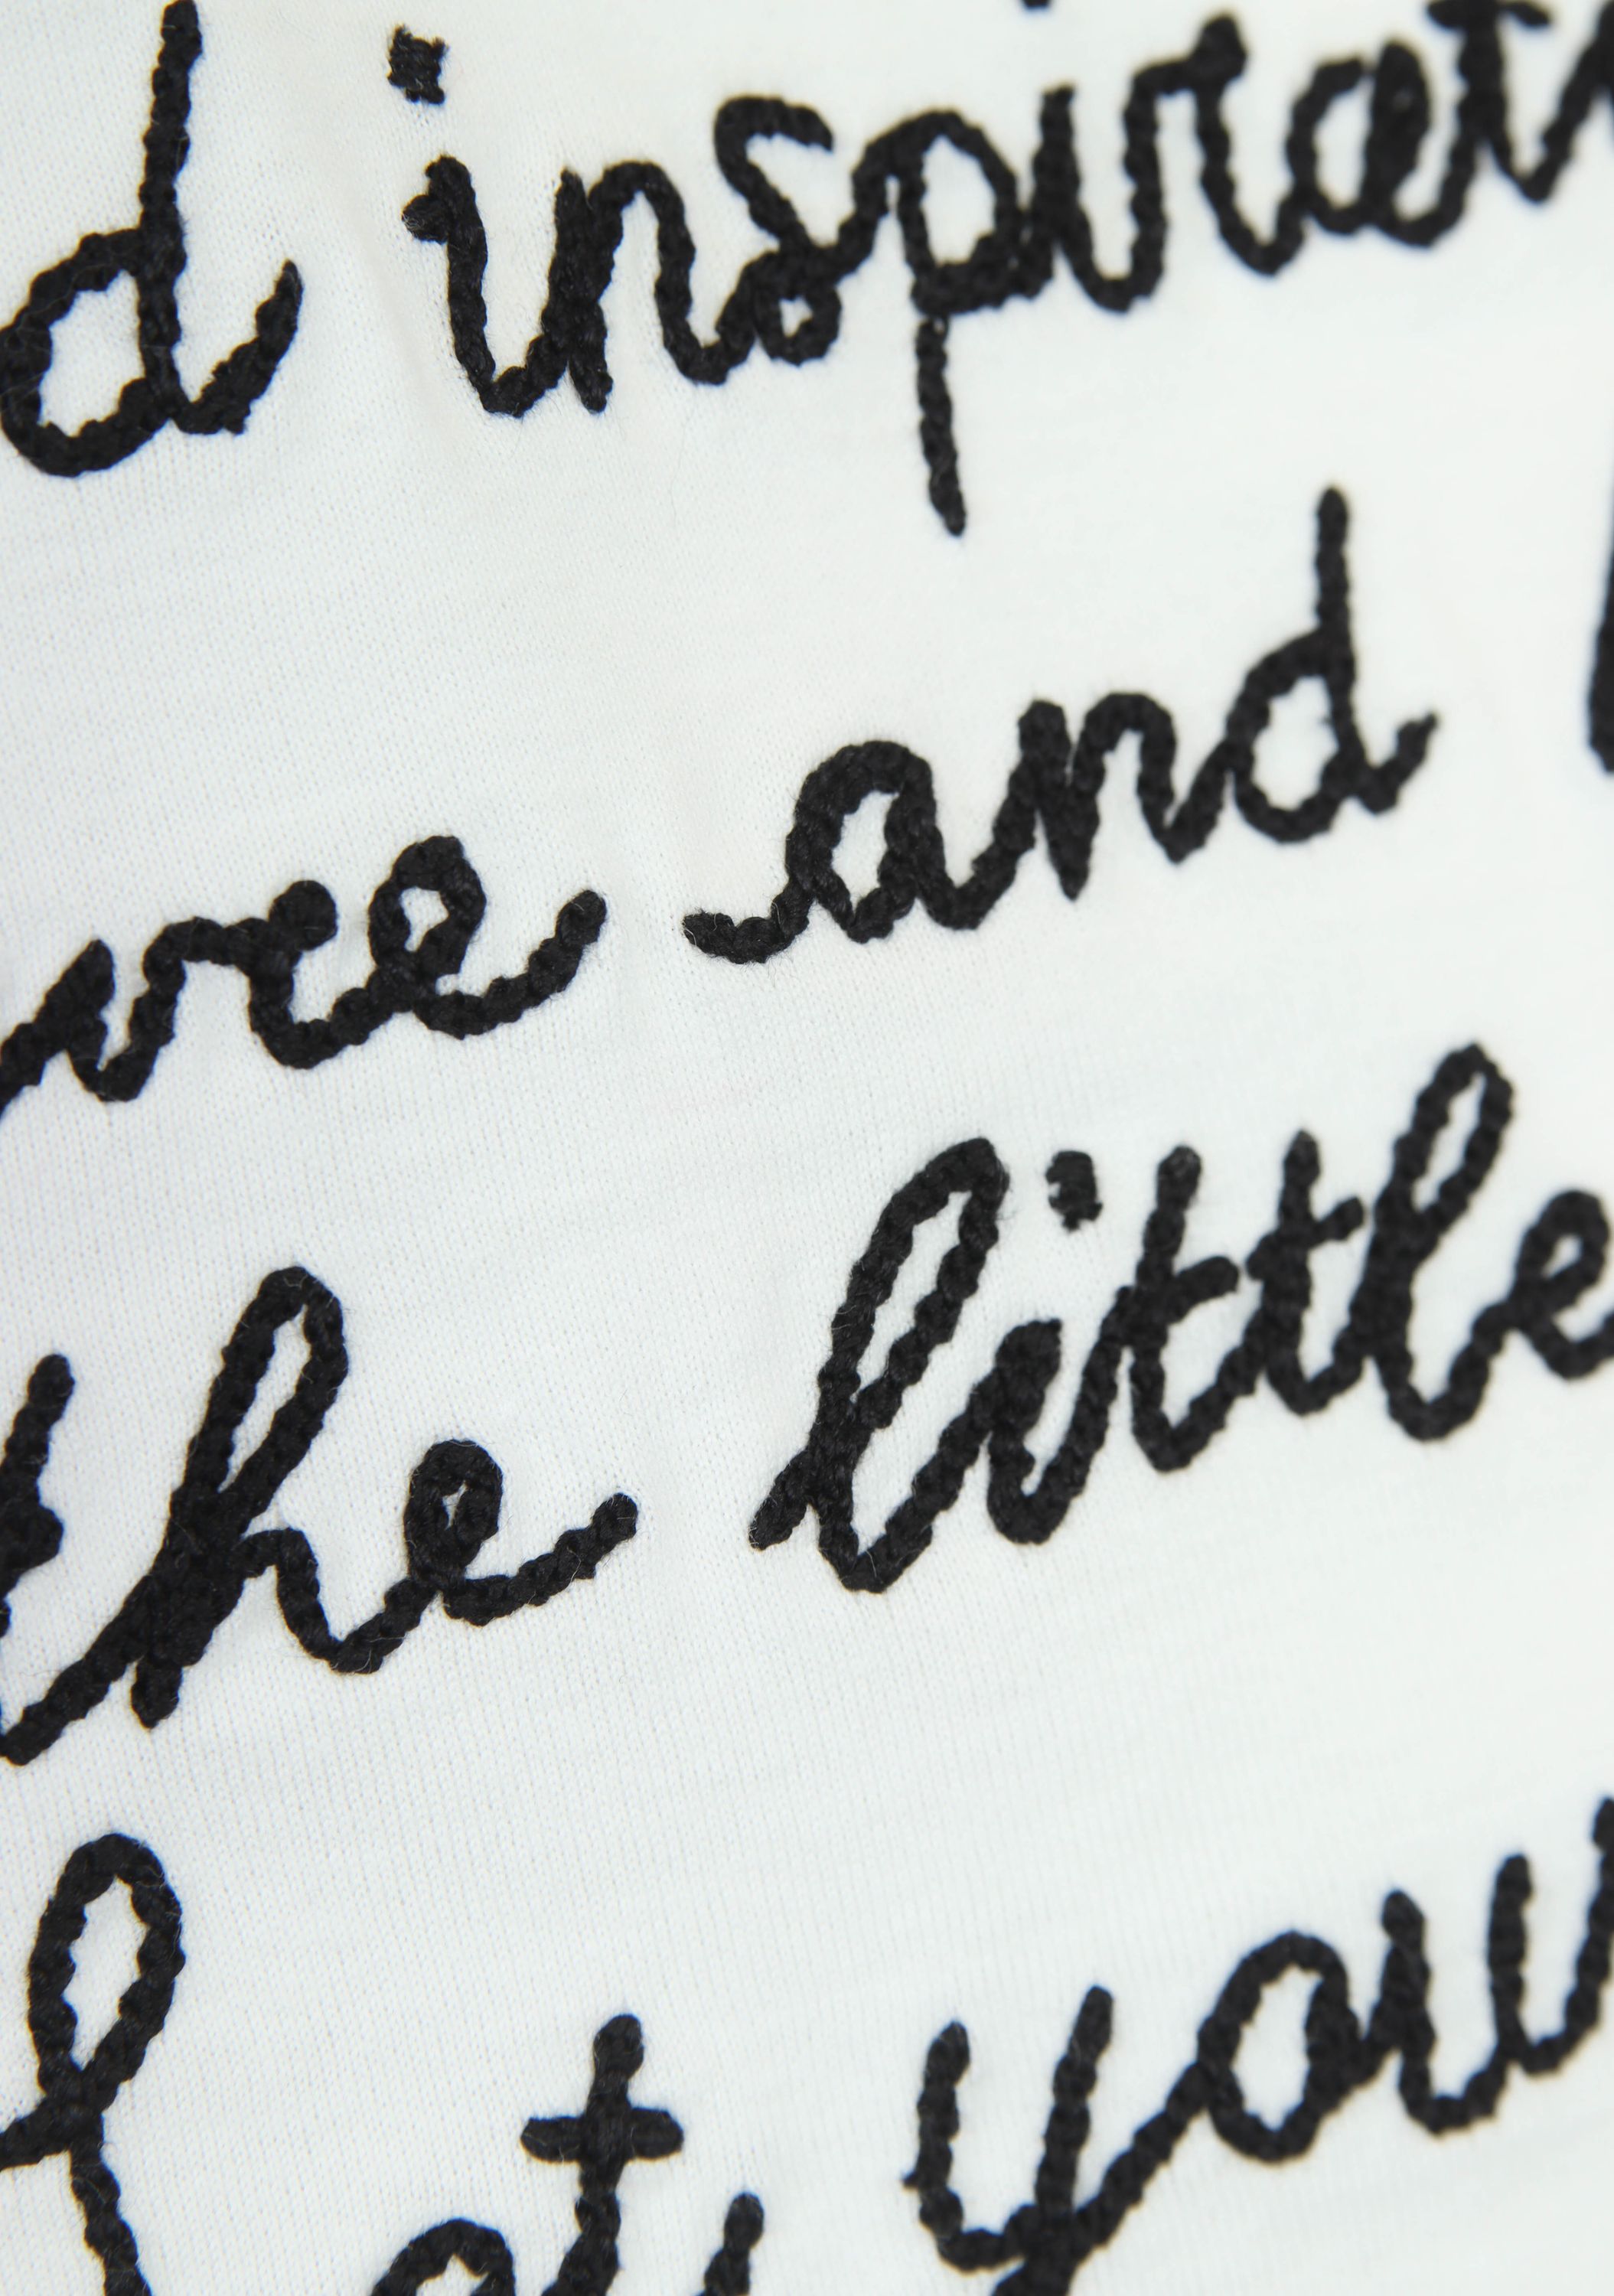 d inspirat
re and
the little
at you